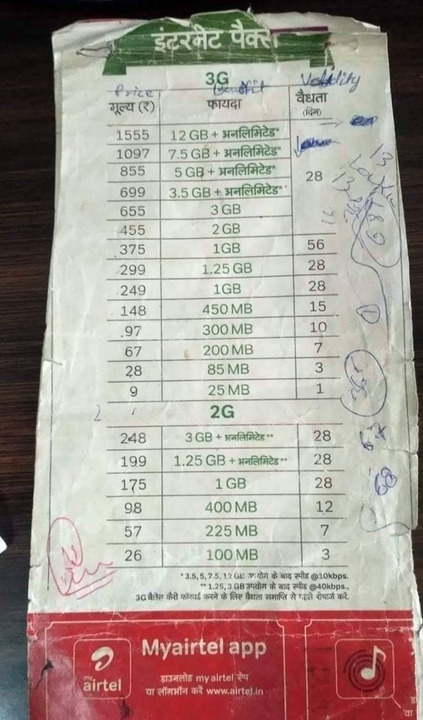 इंटरनेट पैक्स
3G
Price Benefit Validity
मूल्य (₹) फायदा वैधता (दिन)
1555 12 GB + अनलिमिटेड*
1097 7.5 GB + अनलिमिटेड*
855 5 GB + अनलिमिटेड*
28
699 3.5 GB + अनलिमिटेड*
655 3 GB
455 2 GB
375 1GB 56
299 1.25 GB 28
249 1GB 28
148 450 MB 15
97 300 MB 10
67 200 MB 7
28 85 MB 3
9 25 MB 1
2G
248 3 GB + अनलिमिटेड** 28
199 1.25 GB + अनलिमिटेड** 28
175 1 GB 28
98 400 MB 12
57 225 MB 7
26 100 MB 3
*3.5, 5, 7.5, 12 GB उपयोग के बाद स्पीड @10kbps.
**1.25, 3 GB उपयोग के बाद स्पीड @40kbps.
3G बैलेंस कैरी फॉरवर्ड करने के लिए वैधता समाप्ति से पहले रीचार्ज करें.
my airtel
Myairtel app
डाउनलोड my airtel ऐप
या लॉगऑन करें www.airtel.in